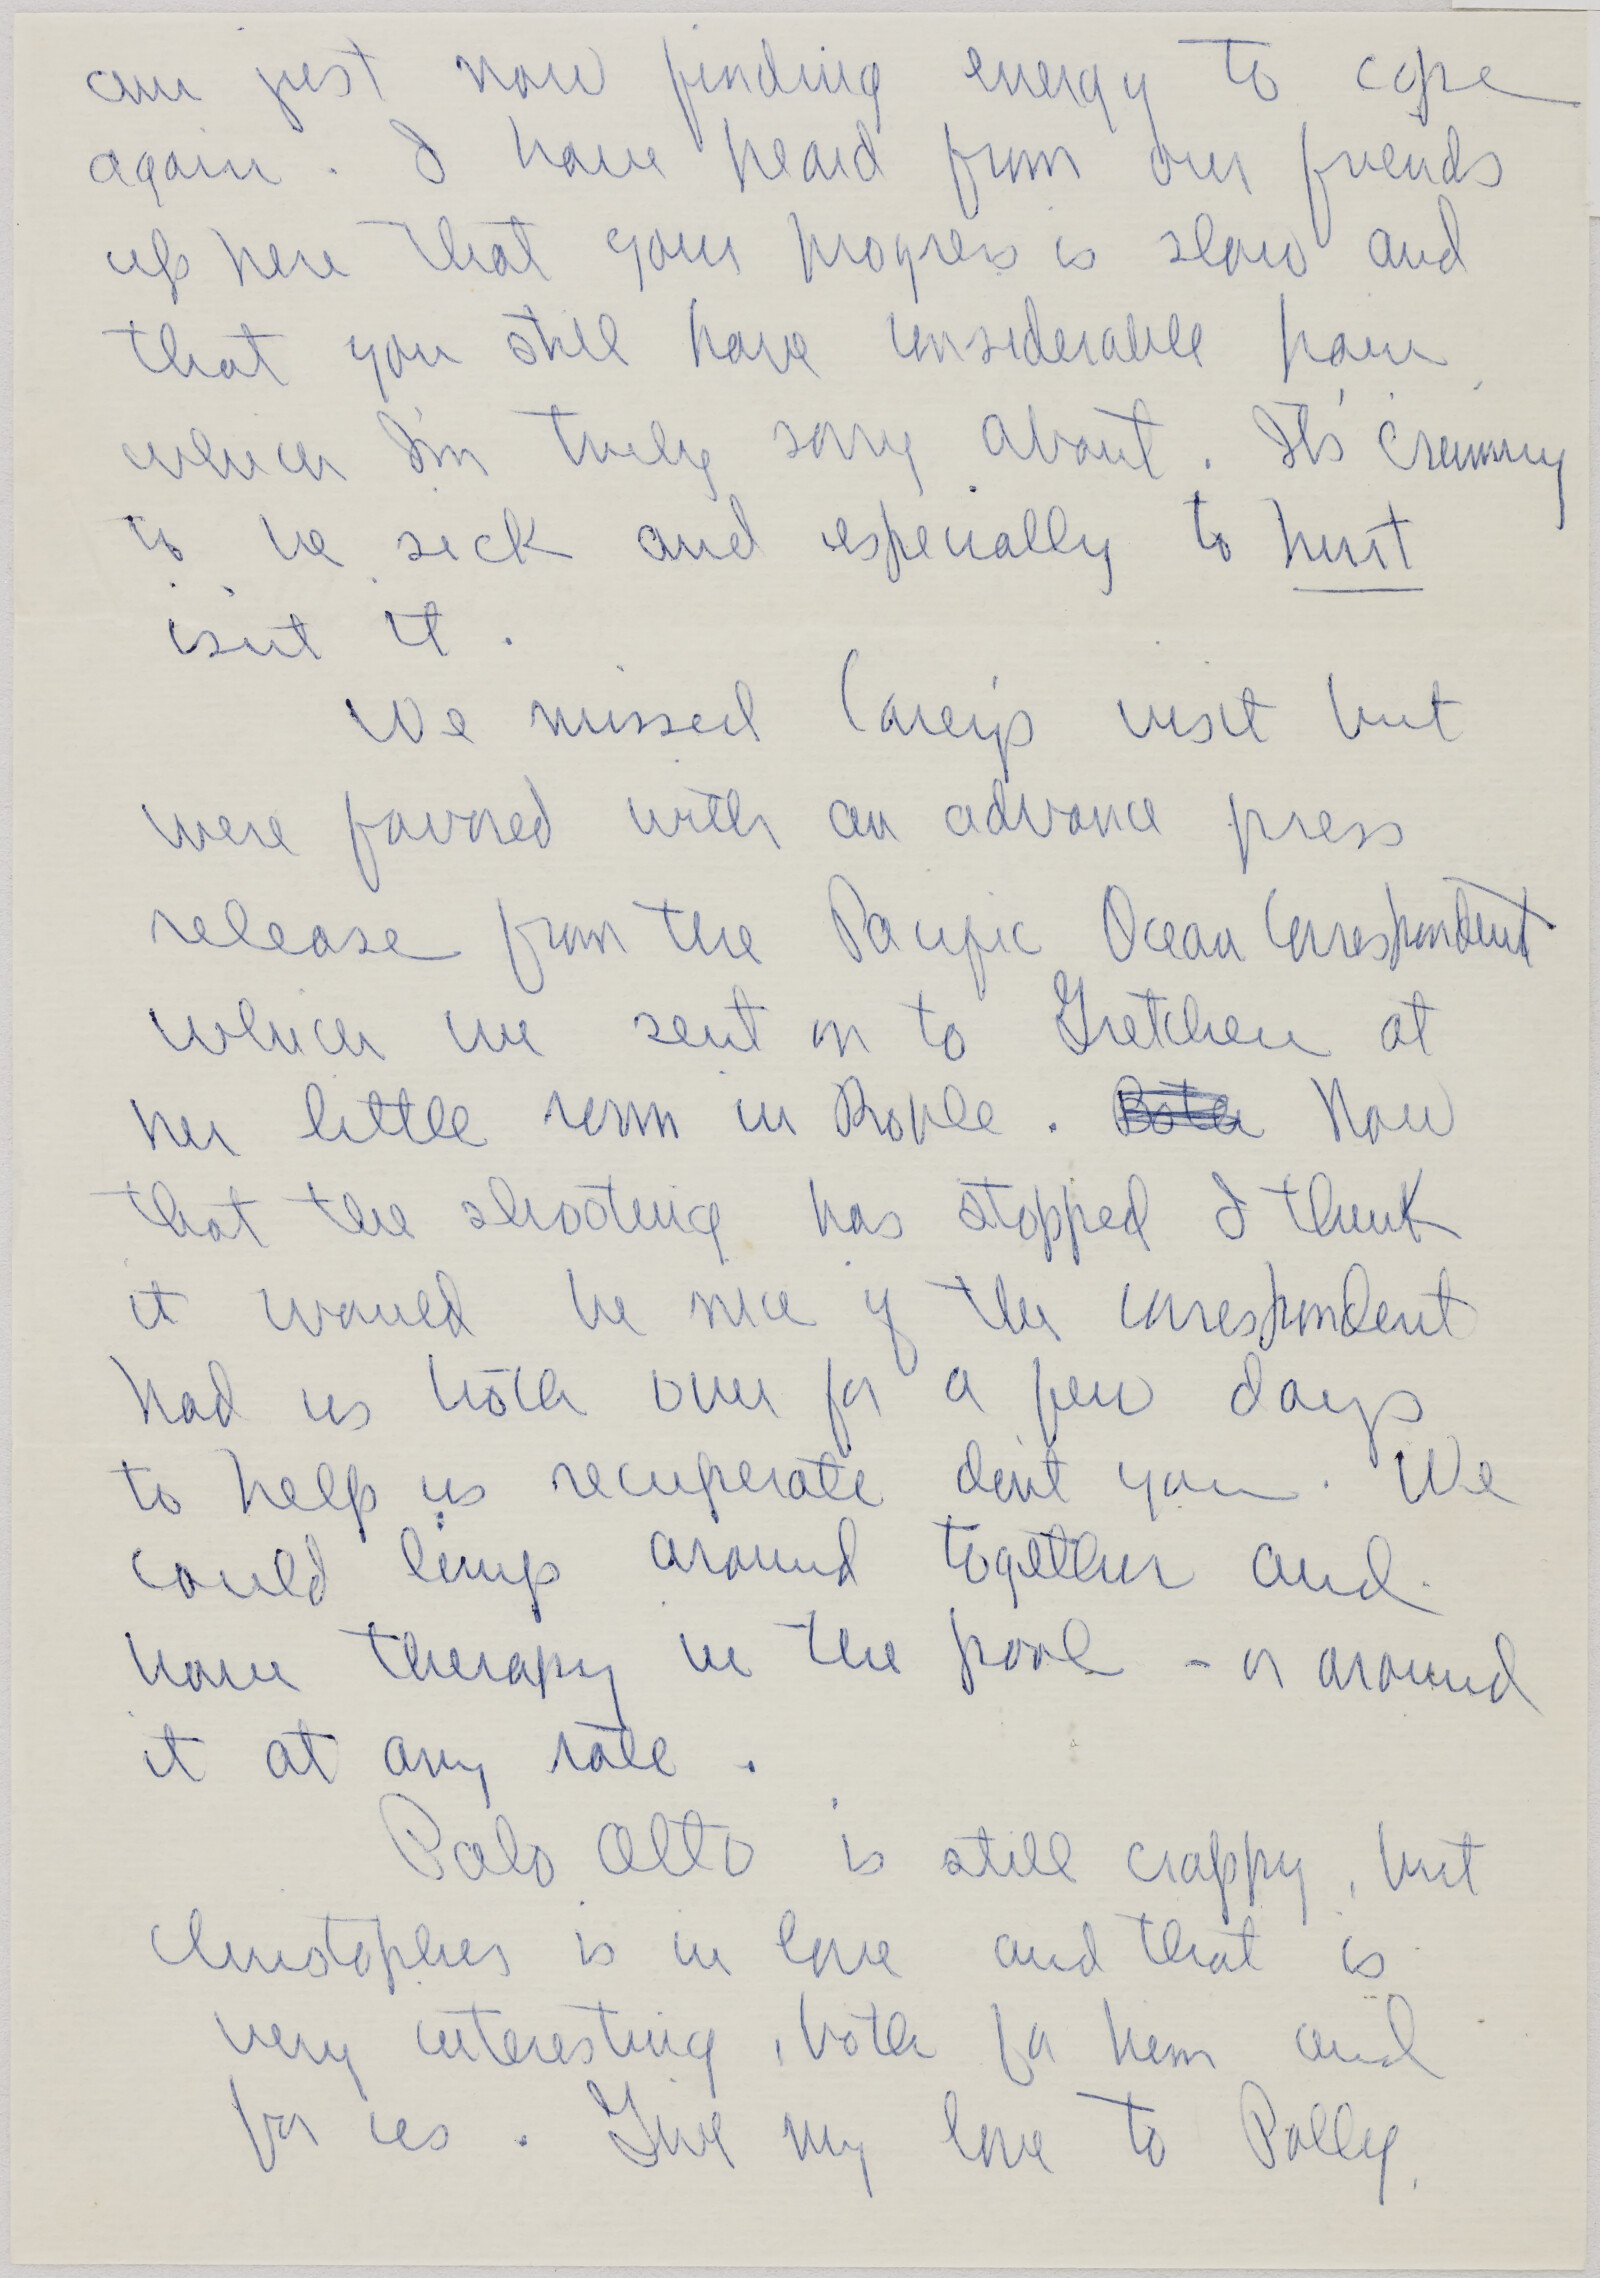 am just now finding energy to cope
again. I have heard from our friends
up here that your progress is slow and
that you still have considerable pain,
which I'm truly sorry about. It's crummy
to be sick and especially to hurt
isnt it.
We missed Carey's visit but
were favored with an advance press
release from the Pacific Ocean Correspondent
which we sent on to Gretchen at
her little room in Roble. Both Now
that the shooting has stopped I think
it would be nice if the correspondent
had us both over for a few days
to help us recuperate don't you. We
could limp around together and
have therapy in the pool - or around
it at any rate.
Palo Alto is still crappy, but
Christopher is in love and that is
very interesting, both for him and
for us. Give my love to Polly.